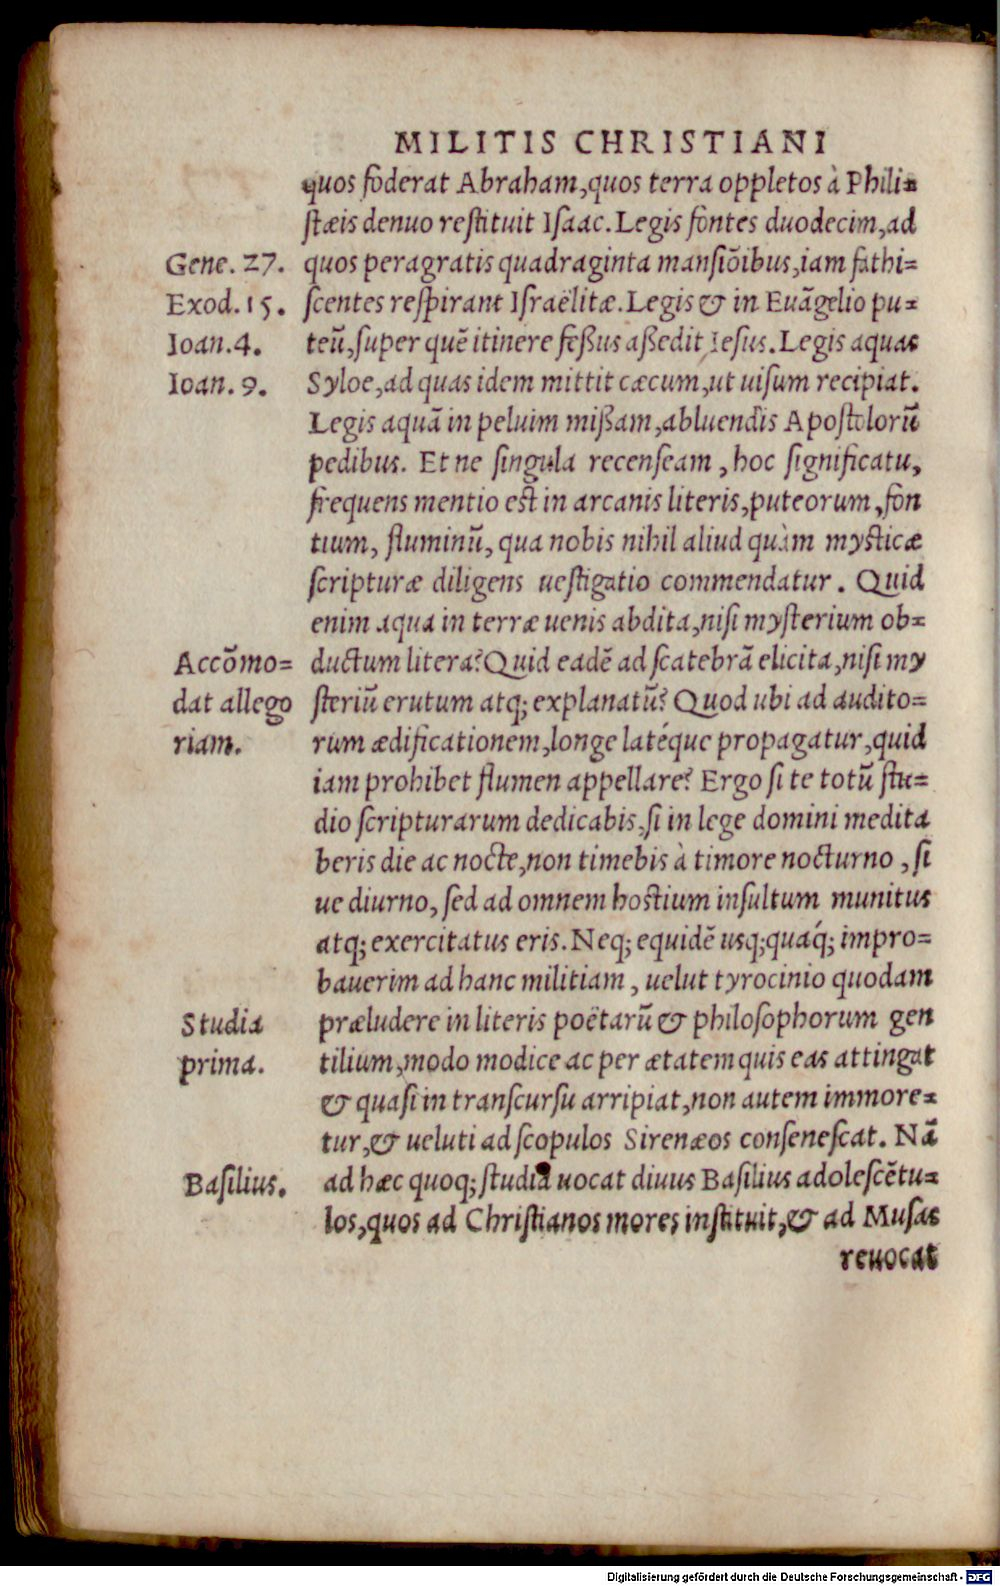 MILITIS CHRISTIANI
quos foderat Abraham, quos terra oppletos à Phili=
stæis denuo restituit Isaac. Legis fontes duodecim, ad
Gene. 27. quos peragratis quadraginta mansiõibus, iam fathi=
Exod. 15. scentes respirant Israëlitæ. Legis & in Euãgelio pu=
Ioan. 4. teũ, super quẽ itinere feßus aßedit Iesus. Legis aquas
Ioan. 9. Syloe, ad quas idem mittit cæcum, ut uisum recipiat.
Legis aquã in peluim mißam, abluendis Apostolorũ
pedibus. Et ne singula recenseam, hoc significatu,
frequens mentio est in arcanis literis, puteorum, fon
tium, fluminũ, qua nobis nihil aliud quàm mysticæ
scripturæ diligens uestigatio commendatur. Quid
enim aqua in terræ uenis abdita, nisi mysterium ob=
Accõmo= ductum litera? Quid eadẽ ad scatebrã elicita, nisi my
dat allego steriũ erutum atq; explanatũ? Quod ubi ad audito=
riam. rum ædificationem, longe latéque propagatur, quid
iam prohibet flumen appellare? Ergo si te totũ stu=
dio scripturarum dedicabis, si in lege domini medita
beris die ac nocte, non timebis à timore nocturno, si
ue diurno, sed ad omnem hostium insultum munitus
atq; exercitatus eris. Neq; equidẽ usq; quáq; impro=
bauerim ad hanc militiam, uelut tyrocinio quodam
Studia præludere in literis poëtarũ & philosophorum gen
prima. tilium, modo modice ac per ætatem quis eas attingat
& quasi in transcursu arripiat, non autem immore=
tur, & ueluti ad scopulos Sirenæos consenescat. Nã
Basilius. ad hæc quoq; studia uocat diuus Basilius adolescẽtu=
los, quos ad Christianos mores instituit, & ad Musas
reuocat
Digitalisierung gefördert durch die Deutsche Forschungsgemeinschaft - DFG